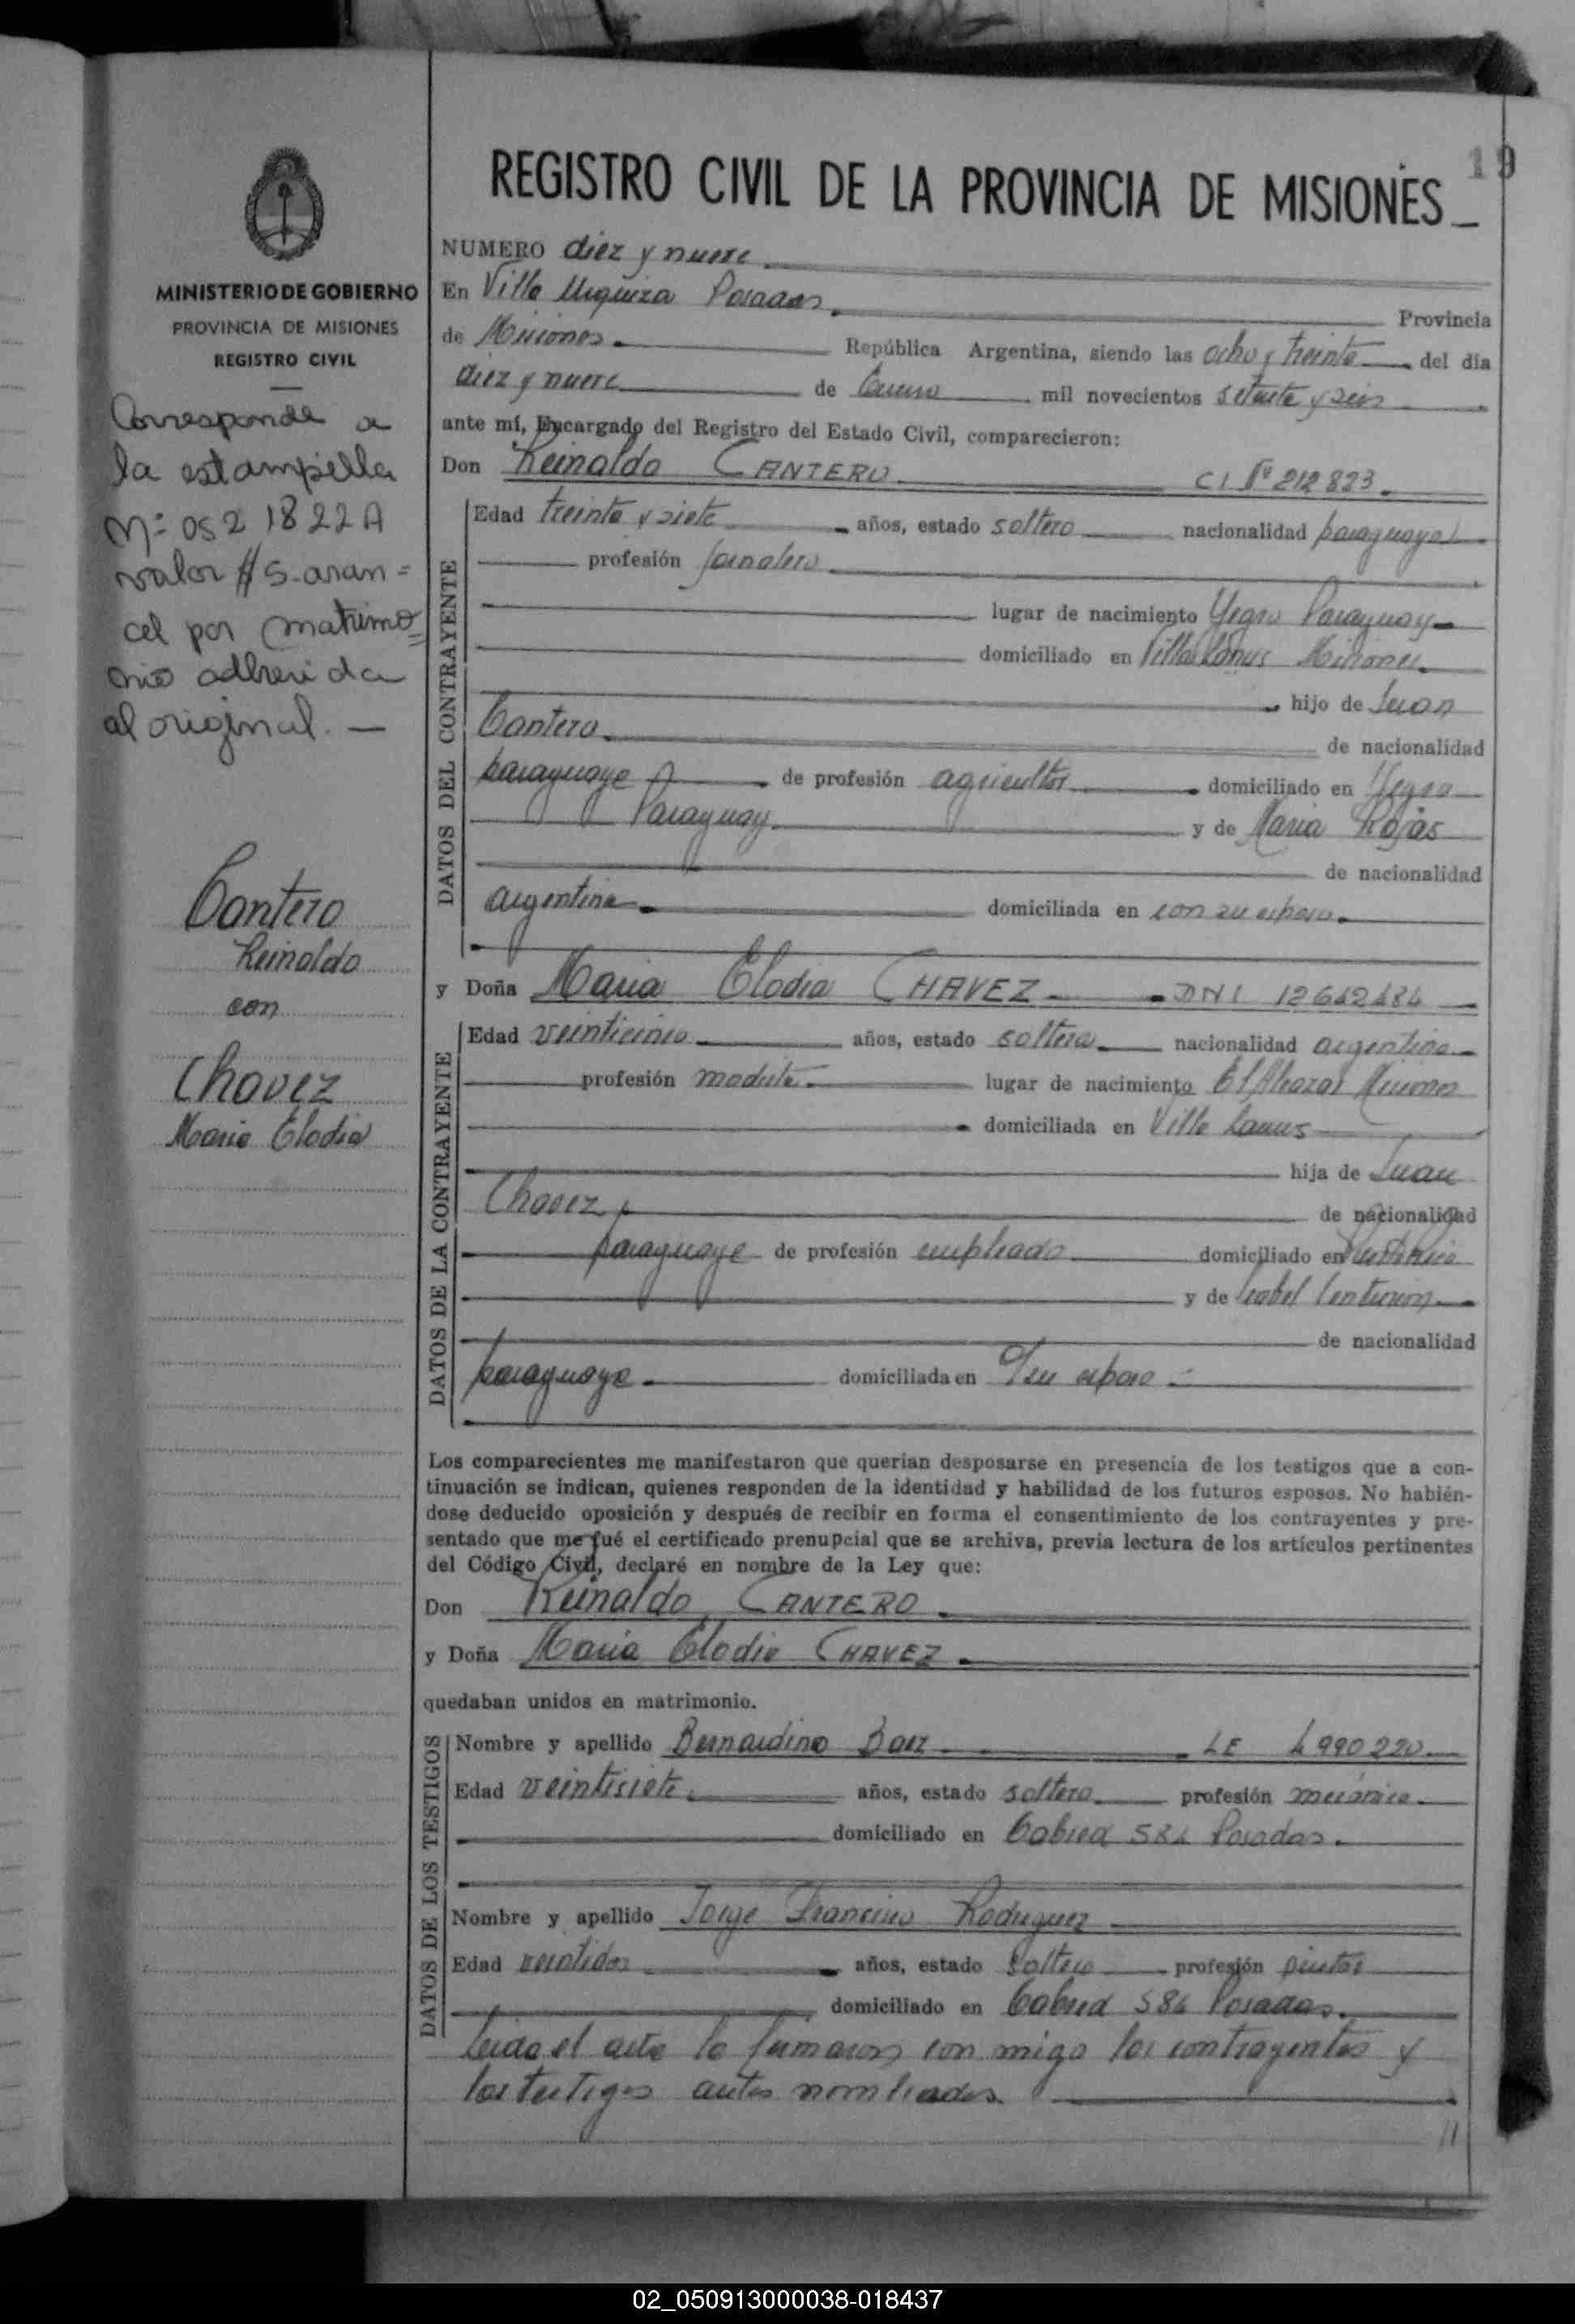 19
REGISTRO CIVIL DE LA PROVINCIA DE MISIONES
NUMERO diez y nueve
MINISTERIO DE GOBIERNO
PROVINCIA DE MISIONES
REGISTRO CIVIL
En Villa Urquiza Posadas Provincia
de Misiones República Argentina, siendo las ocho y treinta del día
diez y nueve de Enero mil novecientos setenta y seis
ante mí, Encargado del Registro del Estado Civil, comparecieron:
Don Reinaldo CANTERO CI Nº 212823
Corresponde a
la estampilla
Nº 052 1822 A
valor $ 5.- aran=
cel por matrimo=
nio adherida
al original. —
DATOS DEL CONTRAYENTE
Edad treinta y siete años, estado soltero nacionalidad paraguaya
profesión jornalero
lugar de nacimiento Yegro Paraguay
domiciliado en Villa Lanus Misiones
hijo de Juan
Cantero de nacionalidad
paraguaya de profesión agricultor domiciliado en Yegro
Paraguay y de Maria Rojas
de nacionalidad
argentina domiciliada en con su esposo
Cantero
Reinaldo
con
Chavez
Maria Elodia
y Doña Maria Elodia CHAVEZ DNI 12642484
DATOS DE LA CONTRAYENTE
Edad veinticinco años, estado soltera nacionalidad argentina
profesión modista lugar de nacimiento El Alcazar Misiones
domiciliada en Villa Lanus
hija de Juan
Chavez de nacionalidad
paraguaya de profesión empleado domiciliado en Puerto Rico
y de Isabel Centurion
de nacionalidad
paraguaya domiciliada en c/su esposo
Los comparecientes me manifestaron que querían desposarse en presencia de los testigos que a con-
tinuación se indican, quienes responden de la identidad y habilidad de los futuros esposos. No habién-
dose deducido oposición y después de recibir en forma el consentimiento de los contrayentes y pre-
sentado que me fué el certificado prenupcial que se archiva, previa lectura de los artículos pertinentes
del Código Civil, declaré en nombre de la Ley que:
Don Reinaldo CANTERO
y Doña Maria Elodia CHAVEZ
quedaban unidos en matrimonio.
DATOS DE LOS TESTIGOS
Nombre y apellido Bernardino Baez LE 4990220
Edad veintisiete años, estado soltero profesión mecánico
domiciliado en Cabred 584 Posadas
Nombre y apellido Jorge Francisco Rodriguez
Edad veintidos años, estado soltero profesión pintor
domiciliado en Cabred 584 Posadas
Leida el acta la firmaron con migo los contrayentes y
los testigos antes nombrados
//
02_050913000038-018437